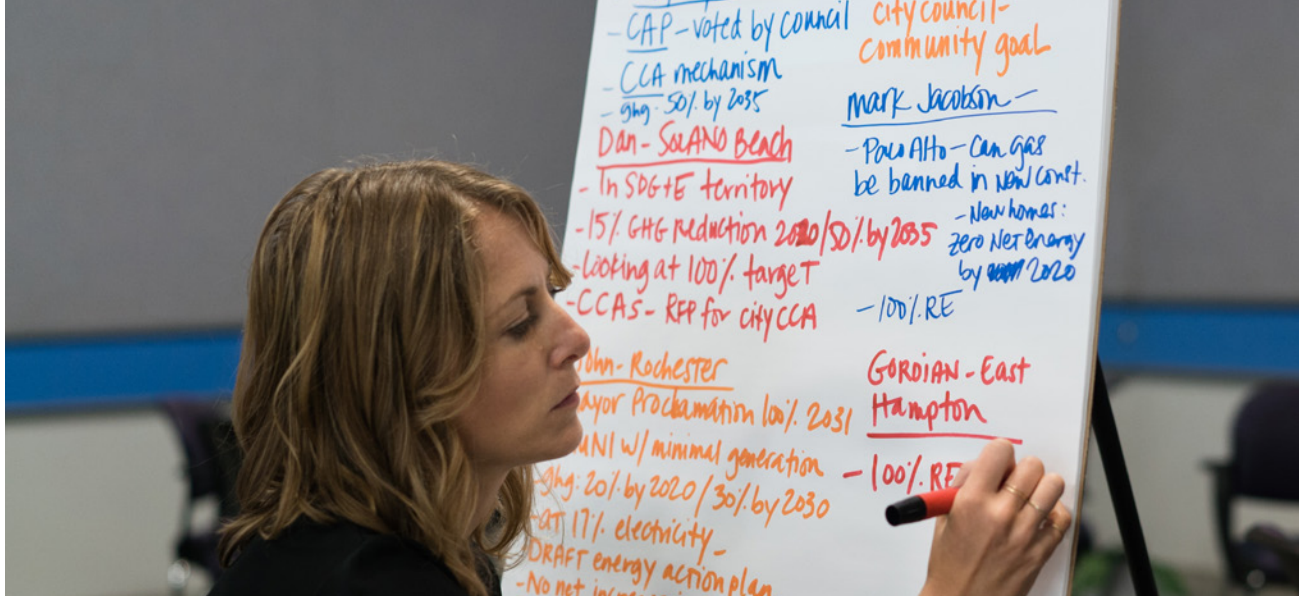 - CAP - voted by council
- CCA mechanism
- ghg: 50% by 2035
Dan - SOLANO Beach
- In SDG+E territory
- 15% GHG Reduction 2020/50% by 2035
- Looking at 100% target
- CCAs - RFP for city CCA
ohn - Rochester
ayor Proclamation 100% 2031
UNI w/ minimal generation
- ghg: 20% by 2020 / 30% by 2030
- at 17% electricity -
DRAFT energy action plan
- No net
city council -
community goal
Mark Jacobson -
- Palo Alto - Can gas
be banned in new const.
- New homes:
Zero Net Energy
by 2020
- 100% RE
GORDIAN - East
Hampton
- 100% RE